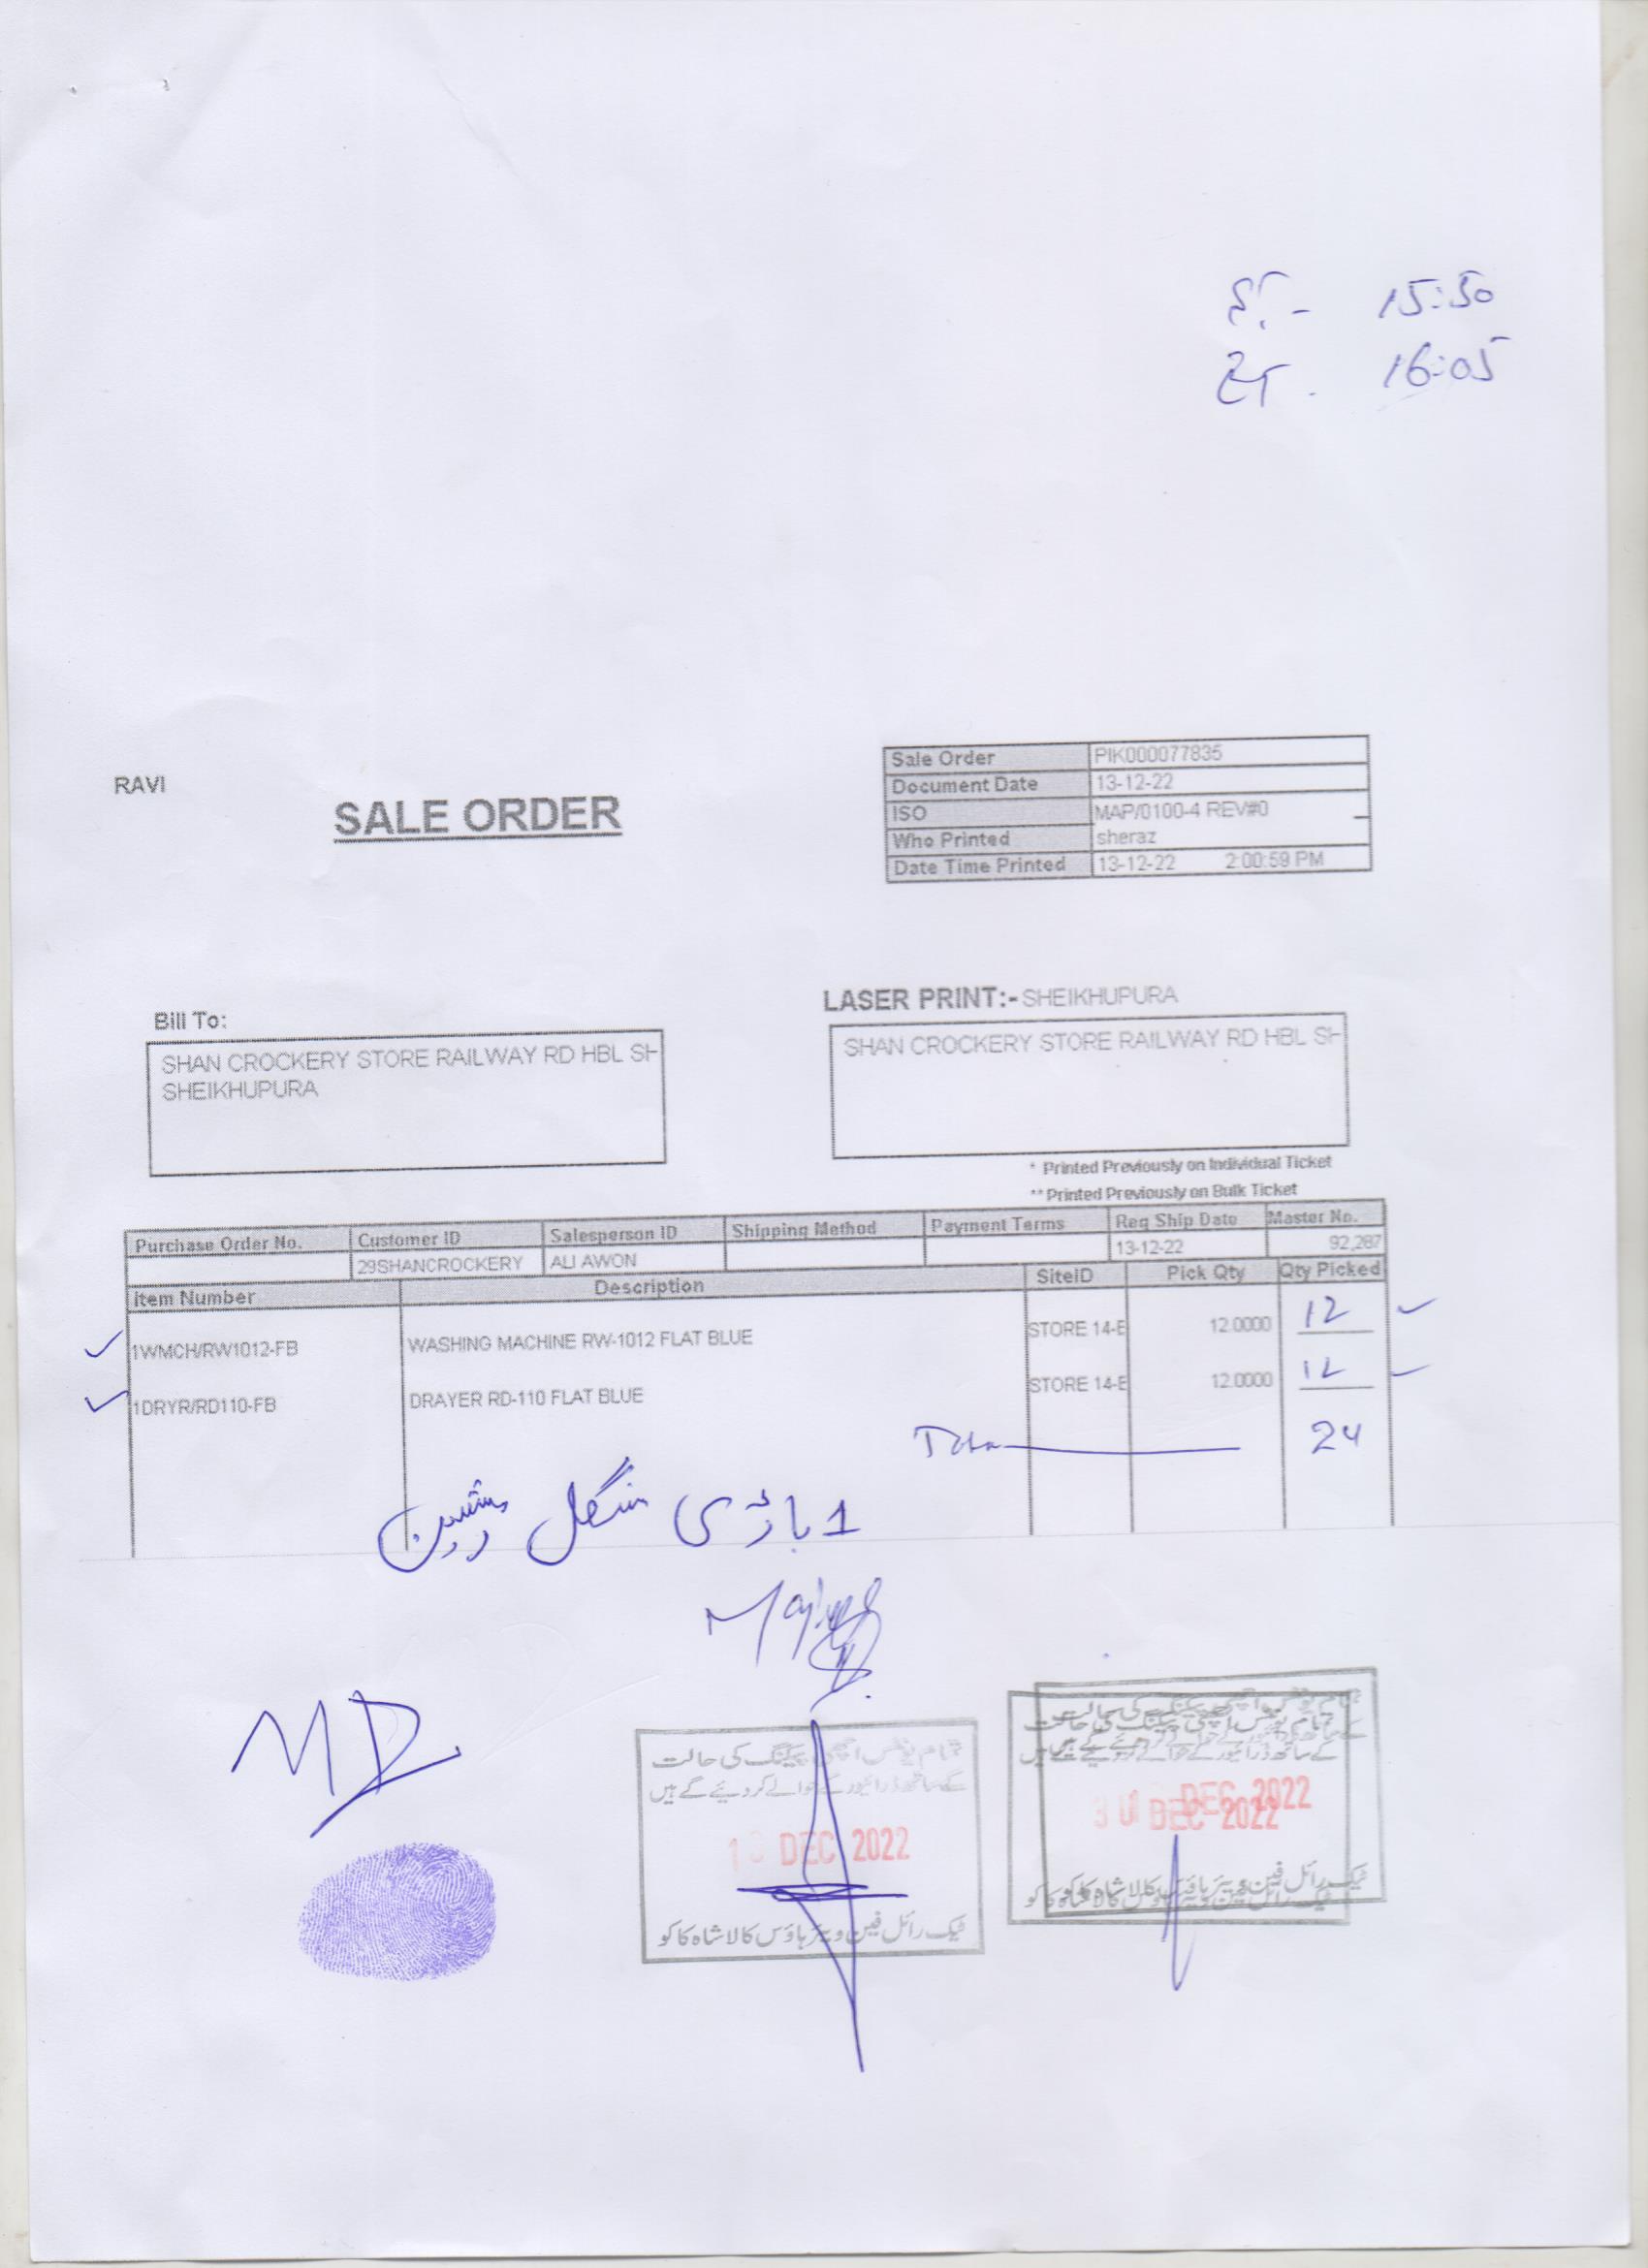 15:50
16:05
RAVI
SALE ORDER
Sale Order PIK000077835
Document Date 13-12-22
ISO MAP/0100-4 REV#0
Who Printed sheraz
Date Time Printed 13-12-22 2:00:59 PM
Bill To:
SHAN CROCKERY STORE RAILWAY RD HBL SH
SHEIKHUPURA
LASER PRINT:- SHEIKHUPURA
SHAN CROCKERY STORE RAILWAY RD HBL SH
* Printed Previously on Individual Ticket
** Printed Previously on Bulk Ticket
Purchase Order No. Customer ID Salesperson ID Shipping Method Payment Terms Req Ship Date Master No.
29SHANCROCKERY ALI AWON 13-12-22 92,287
Item Number Description SiteID Pick Qty Qty Picked
1WMCH/RW1012-FB WASHING MACHINE RW-1012 FLAT BLUE STORE 14-E 12.0000 12
1DRYR/RD110-FB DRAYER RD-110 FLAT BLUE STORE 14-E 12.0000 12
Total 24
1 باڈی سنگل مشین
MD
تمام یونٹس اچھی پیکنگ کی حالت
کے ساتھ ڈرائیور کے حوالے کر دیئے گے ہیں
DEC 2022
ٹیک رائل فین ویئر ہاؤس کالا شاہ کاکو
تمام یونٹس اچھی پیکنگ کی حالت
کے ساتھ ڈرائیور کے حوالے کر دیئے گے ہیں
DEC 2022
ٹیک رائل فین ویئر ہاؤس کالا شاہ کاکو